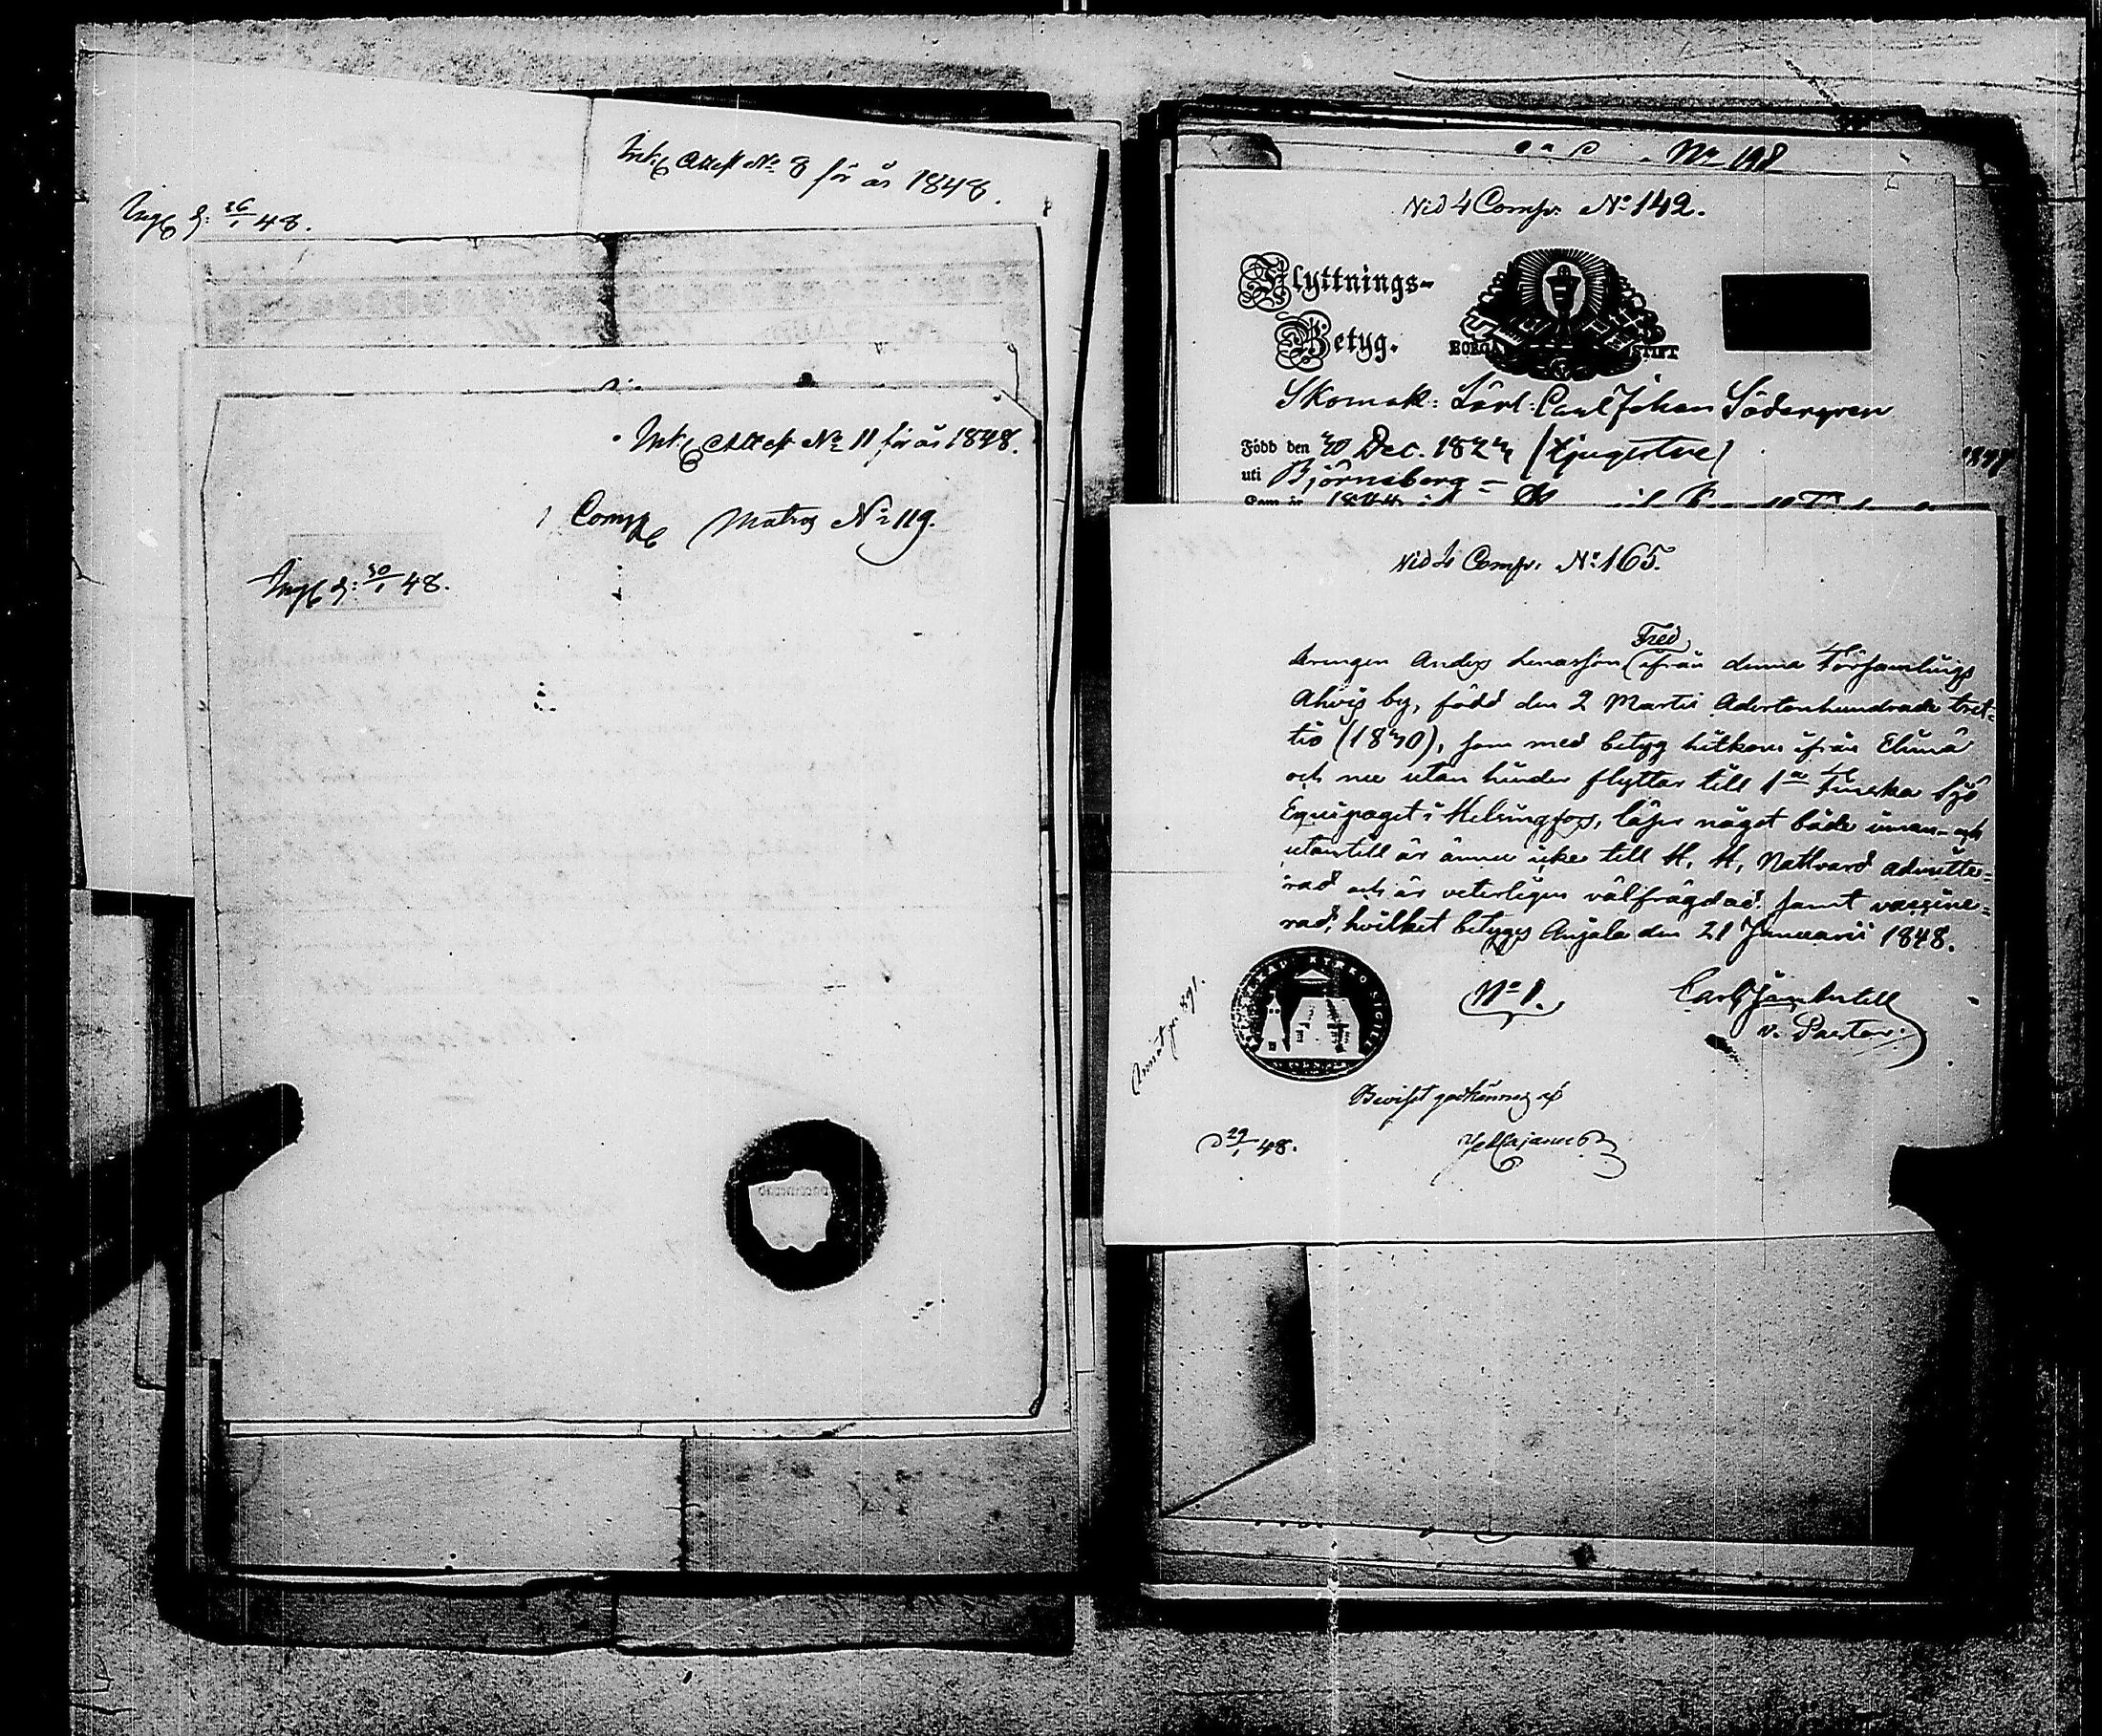 Attest No 8 för år 1848.
d: 26/1 48.
Attest No 11 för år 1848.
1 Comp Matros No 119.
d: 30/1 48.
No 198
Vid 4 Comp. No 142.
Flyttnings-
Betyg.
BORGÅ STIFT
Skomak: Lärl: Carl Johan Södergren
Född den 30 Dec. 1823 (tjugutre)
uti Björneborg
Vid 4 Comp. No 165.
Fred
Drengen Anders Henrasson ifrån denna Församlings
Ahvis by, född den 2 Martii Adertonhundrade tret-
tio (1830), som med betyg hitkom ifrån Elimä
och nu utan hinder flyttar till 1a Finska Sjö
Equipaget i Helsingfors, läser något både innan- och
utantill är ännu icke till H. H. Nattvard admitte-
rad och är veterligen välfrägdad samt vaccine-
rad, hvilket betygas Anjala den 21 Januarii 1848.
No 1.
Carl
v. Pastor.
KYRKO SIGILL
Beviset godkännes af
d 29/1 48.